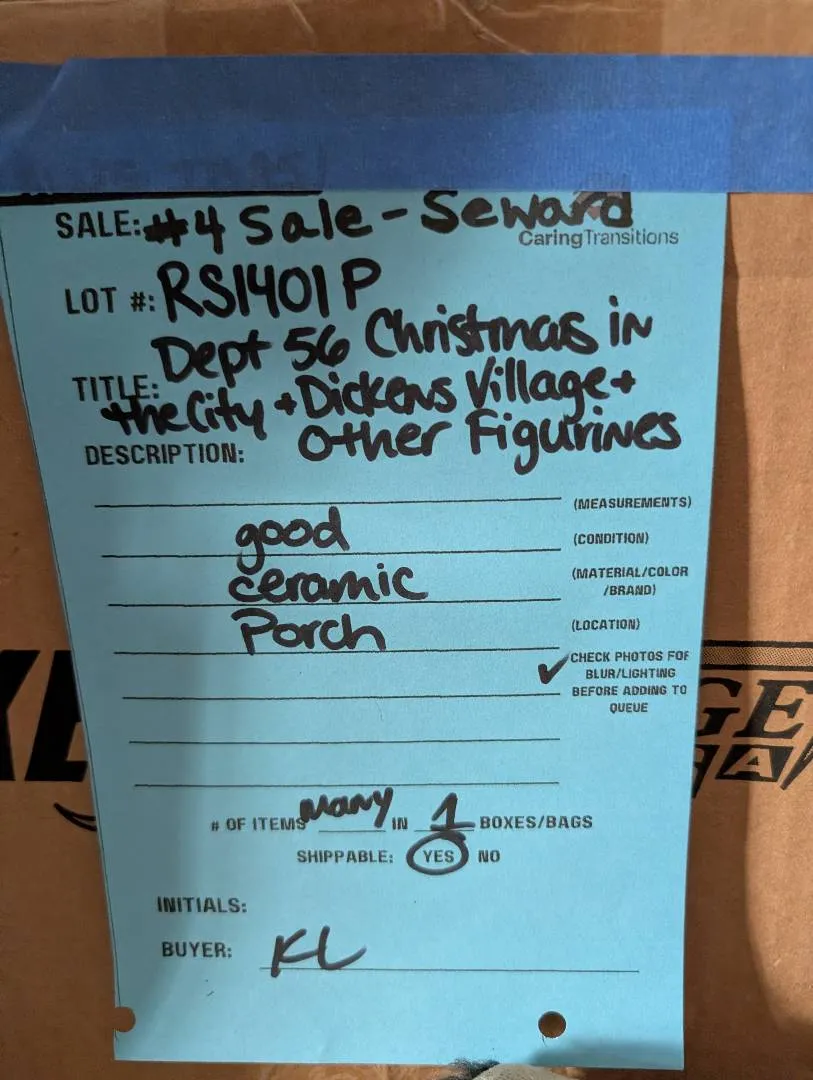 SALE: #4 Sale - Seward
CaringTransitions
LOT #: RS1401P
Dept 56 Christmas in
TITLE: the City + Dickens Village +
DESCRIPTION: Other Figurines
(MEASUREMENTS)
good (CONDITION)
ceramic (MATERIAL/COLOR
/BRAND)
Porch (LOCATION)
✓ CHECK PHOTOS FOR
BLUR/LIGHTING
BEFORE ADDING TO
QUEUE
# OF ITEMS Many IN 1 BOXES/BAGS
SHIPPABLE: YES NO
INITIALS:
BUYER: KL